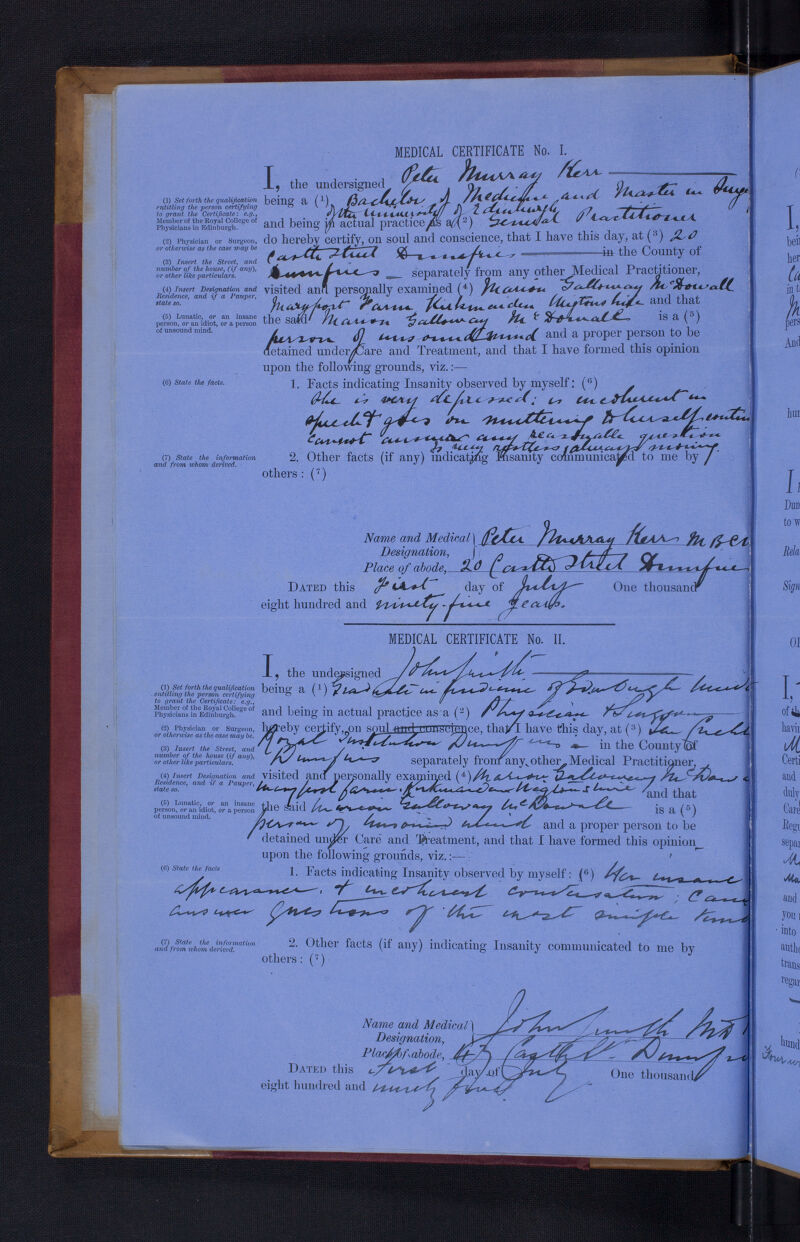 MEDICAL CERTIFICATE No. I.
I, the undersigned Peter Murray Kerr
(1) Set forth the qualification entitling the person certifying to grant the Certificate: e.g., Member of the Royal College of Physicians in Edinburgh.
being a (1) Bachelor of Medicine and Master in
of the University of Edinburgh
and being in actual practice as a (2) General Practitioner
(2) Physician or Surgeon, or otherwise as the case may be
do hereby certify, on soul and conscience, that I have this day, at (3) 20
Castle Street Dumfries in the County of
(3) Insert the Street, and number of the house, (if any), or other like particulars.
Dumfries separately from any other Medical Practitioner,
(4) Insert Designation and Residence, and if a Pauper, state so.
visited and personally examined (4) Marion Galloway McDowall
Maryport Farm Kirkmaiden Wigtonshire and that
(5) Lunatic, or an insane person, or an idiot, or a person of unsound mind.
the said Marion Galloway McDowall is a (5)
person of unsound mind and a proper person to be
detained under Care and Treatment, and that I have formed this opinion
upon the following grounds, viz.:—
(6) State the facts.
1. Facts indicating Insanity observed by myself: (6)
She is very depressed: is incoherent in
speech & goes on muttering to herself
cannot answer any reasonable question
is very restless always moving.
(7) State the information and from whom derived.
2. Other facts (if any) indicating Insanity communicated to me by
others: (7)
Name and Medical Designation, Peter Murray Kerr M B
Place of abode, 20 Castle Street
DATED this First day of July One thousand
eight hundred and ninety-five years.
MEDICAL CERTIFICATE No. II.
I, the undersigned John Smith
(1) Set forth the qualification entitling the person certifying to grant the Certificate: e.g., Member of the Royal College of Physicians in Edinburgh.
being a (1) Graduate in Medicine of Edinburgh
and being in actual practice as a (2) Physician & Surgeon
(2) Physician or Surgeon, or otherwise as the case may be.
hereby certify, on soul and conscience, that I have this day, at (3) The
Royal Institution Dumfries in the County of
(3) Insert the Street, and number of the house (if any), or other like particulars.
Dumfries separately from any other Medical Practitioner,
(4) Insert Designation and Residence, and if a Pauper, state so.
visited and personally examined (4) Marion Galloway
Maryport farm, Kirkmaiden Wigtonshire and that
(5) Lunatic, or an insane person, or an idiot, or a person of unsound mind.
the said Marion Galloway McDowall is a (5)
person of unsound mind and a proper person to be
detained under Care and Treatment, and that I have formed this opinion
upon the following grounds, viz.:—
(6) State the facts
1. Facts indicating Insanity observed by myself: (6) Her insane
appearance, & incoherent conversation;
answer questions of the most simple
(7) State the information and from whom derived.
2. Other facts (if any) indicating Insanity communicated to me by
others: (7)
Name and Medical Designation, John Smith
Place of abode, Castle St.
DATED this First day of July One thousand
eight hundred and ninety five